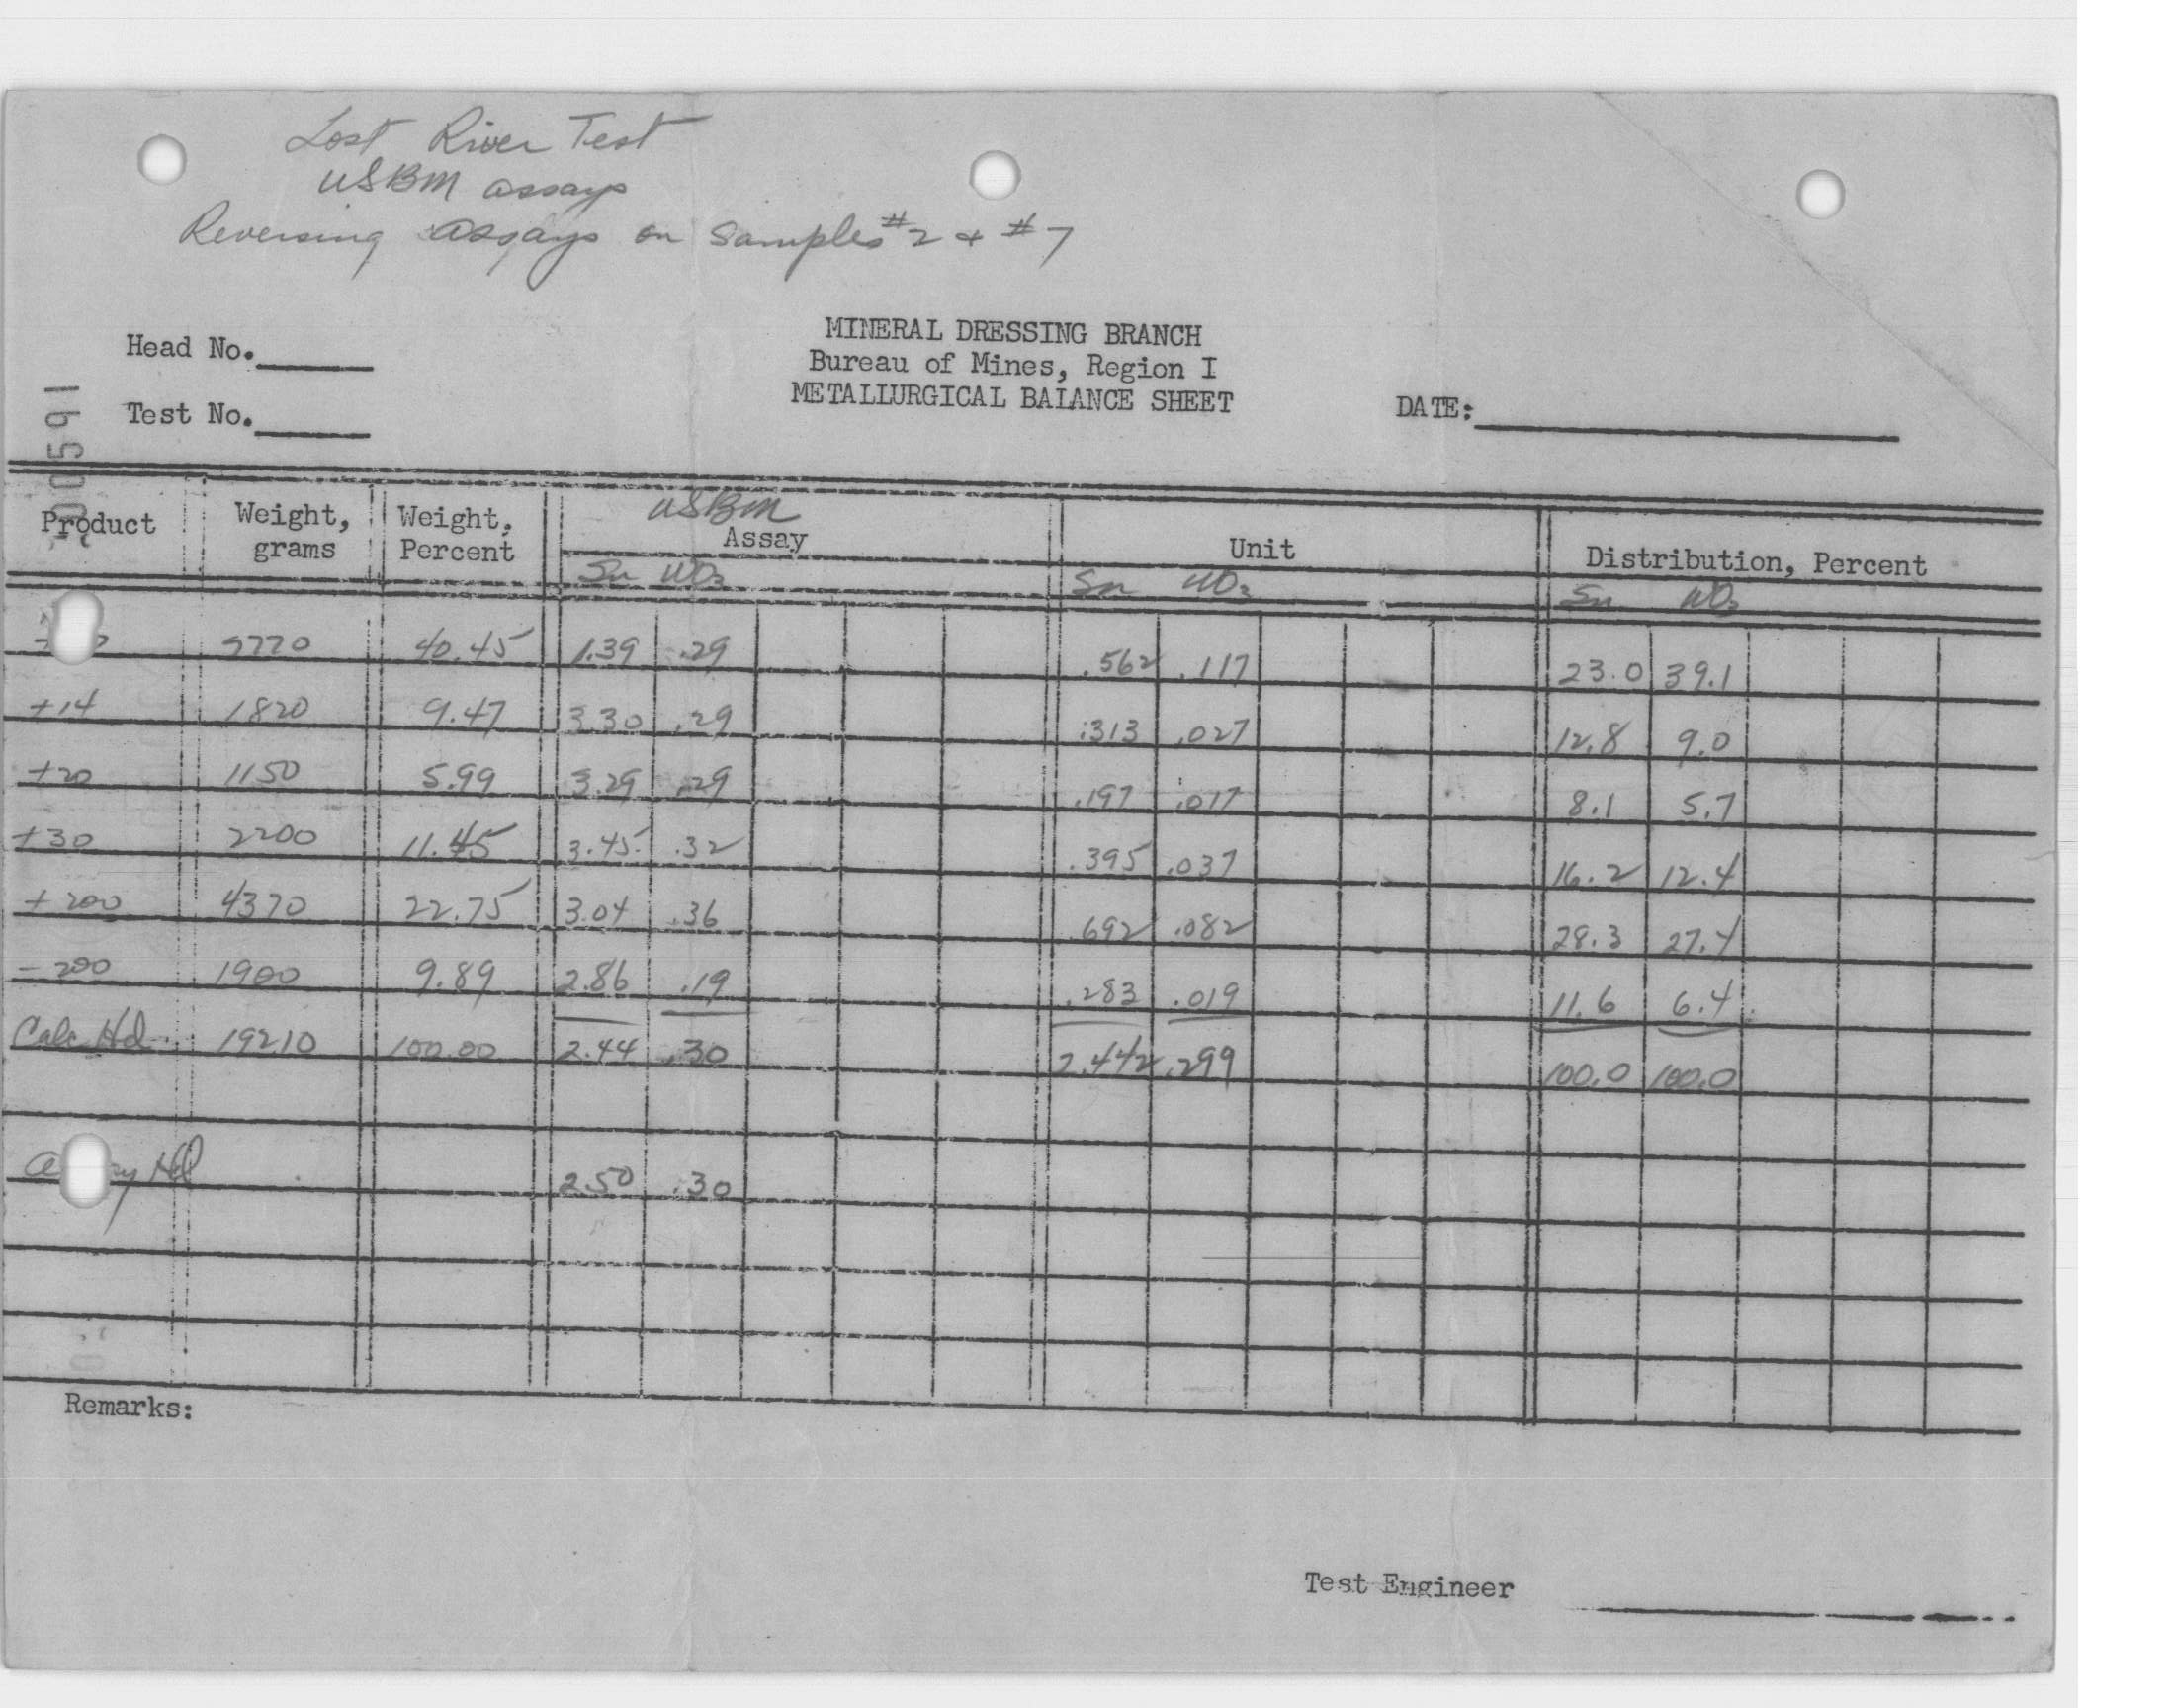 Lost River Test
USBM assays
Reversing assays on samples #2 & #7
MINERAL DRESSING BRANCH
Head No.
Bureau of Mines, Region I
METALLURGICAL BALANCE SHEET
Test No.
DATE:
000591
USBM
Product Weight, grams Weight, Percent Assay Unit Distribution, Percent
Sn WO3 Sn WO3 Sn WO3
7770 40.45 1.39 .29 .562 .117 23.0 39.1
+14 1820 9.47 3.30 .29 .313 .027 12.8 9.0
+20 1150 5.99 3.29 .29 .197 .017 8.1 5.7
+30 2200 11.45 3.45 .32 .395 .037 16.2 12.4
+200 4370 22.75 3.04 .36 .692 .082 28.3 27.4
-200 1900 9.89 2.86 .19 .283 .019 11.6 6.4
Calc Hd 19210 100.00 2.44 .30 2.442 .299 100.0 100.0
Hd 2.50 .30
Remarks:
Test Engineer